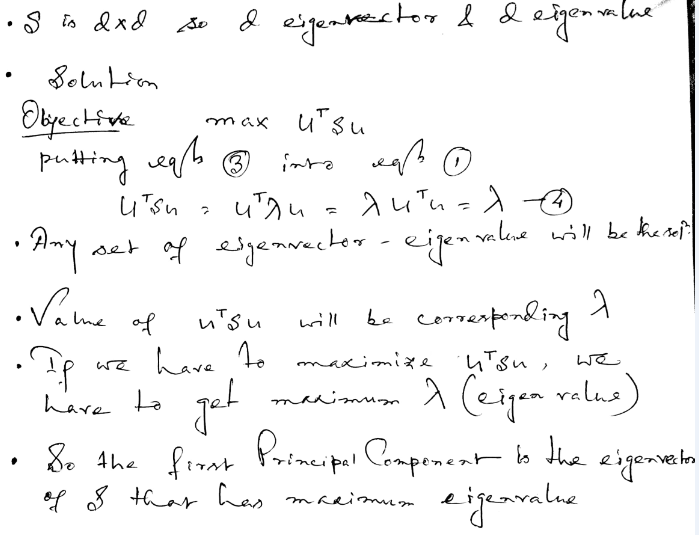 • S is d×d so d eigenvector & d eigenvalue
• Solution
Objective max uᵀSu
putting eqn ③ into eqn ①
uᵀSu = uᵀλu = λuᵀu = λ —④
• Any set of eigenvector - eigenvalue will be the solⁿ
• Value of uᵀSu will be corresponding λ
• If we have to maximize uᵀSu, we
have to get maximum λ (eigen value)
• So the first Principal Component is the eigenvector
of S that has maximum eigenvalue